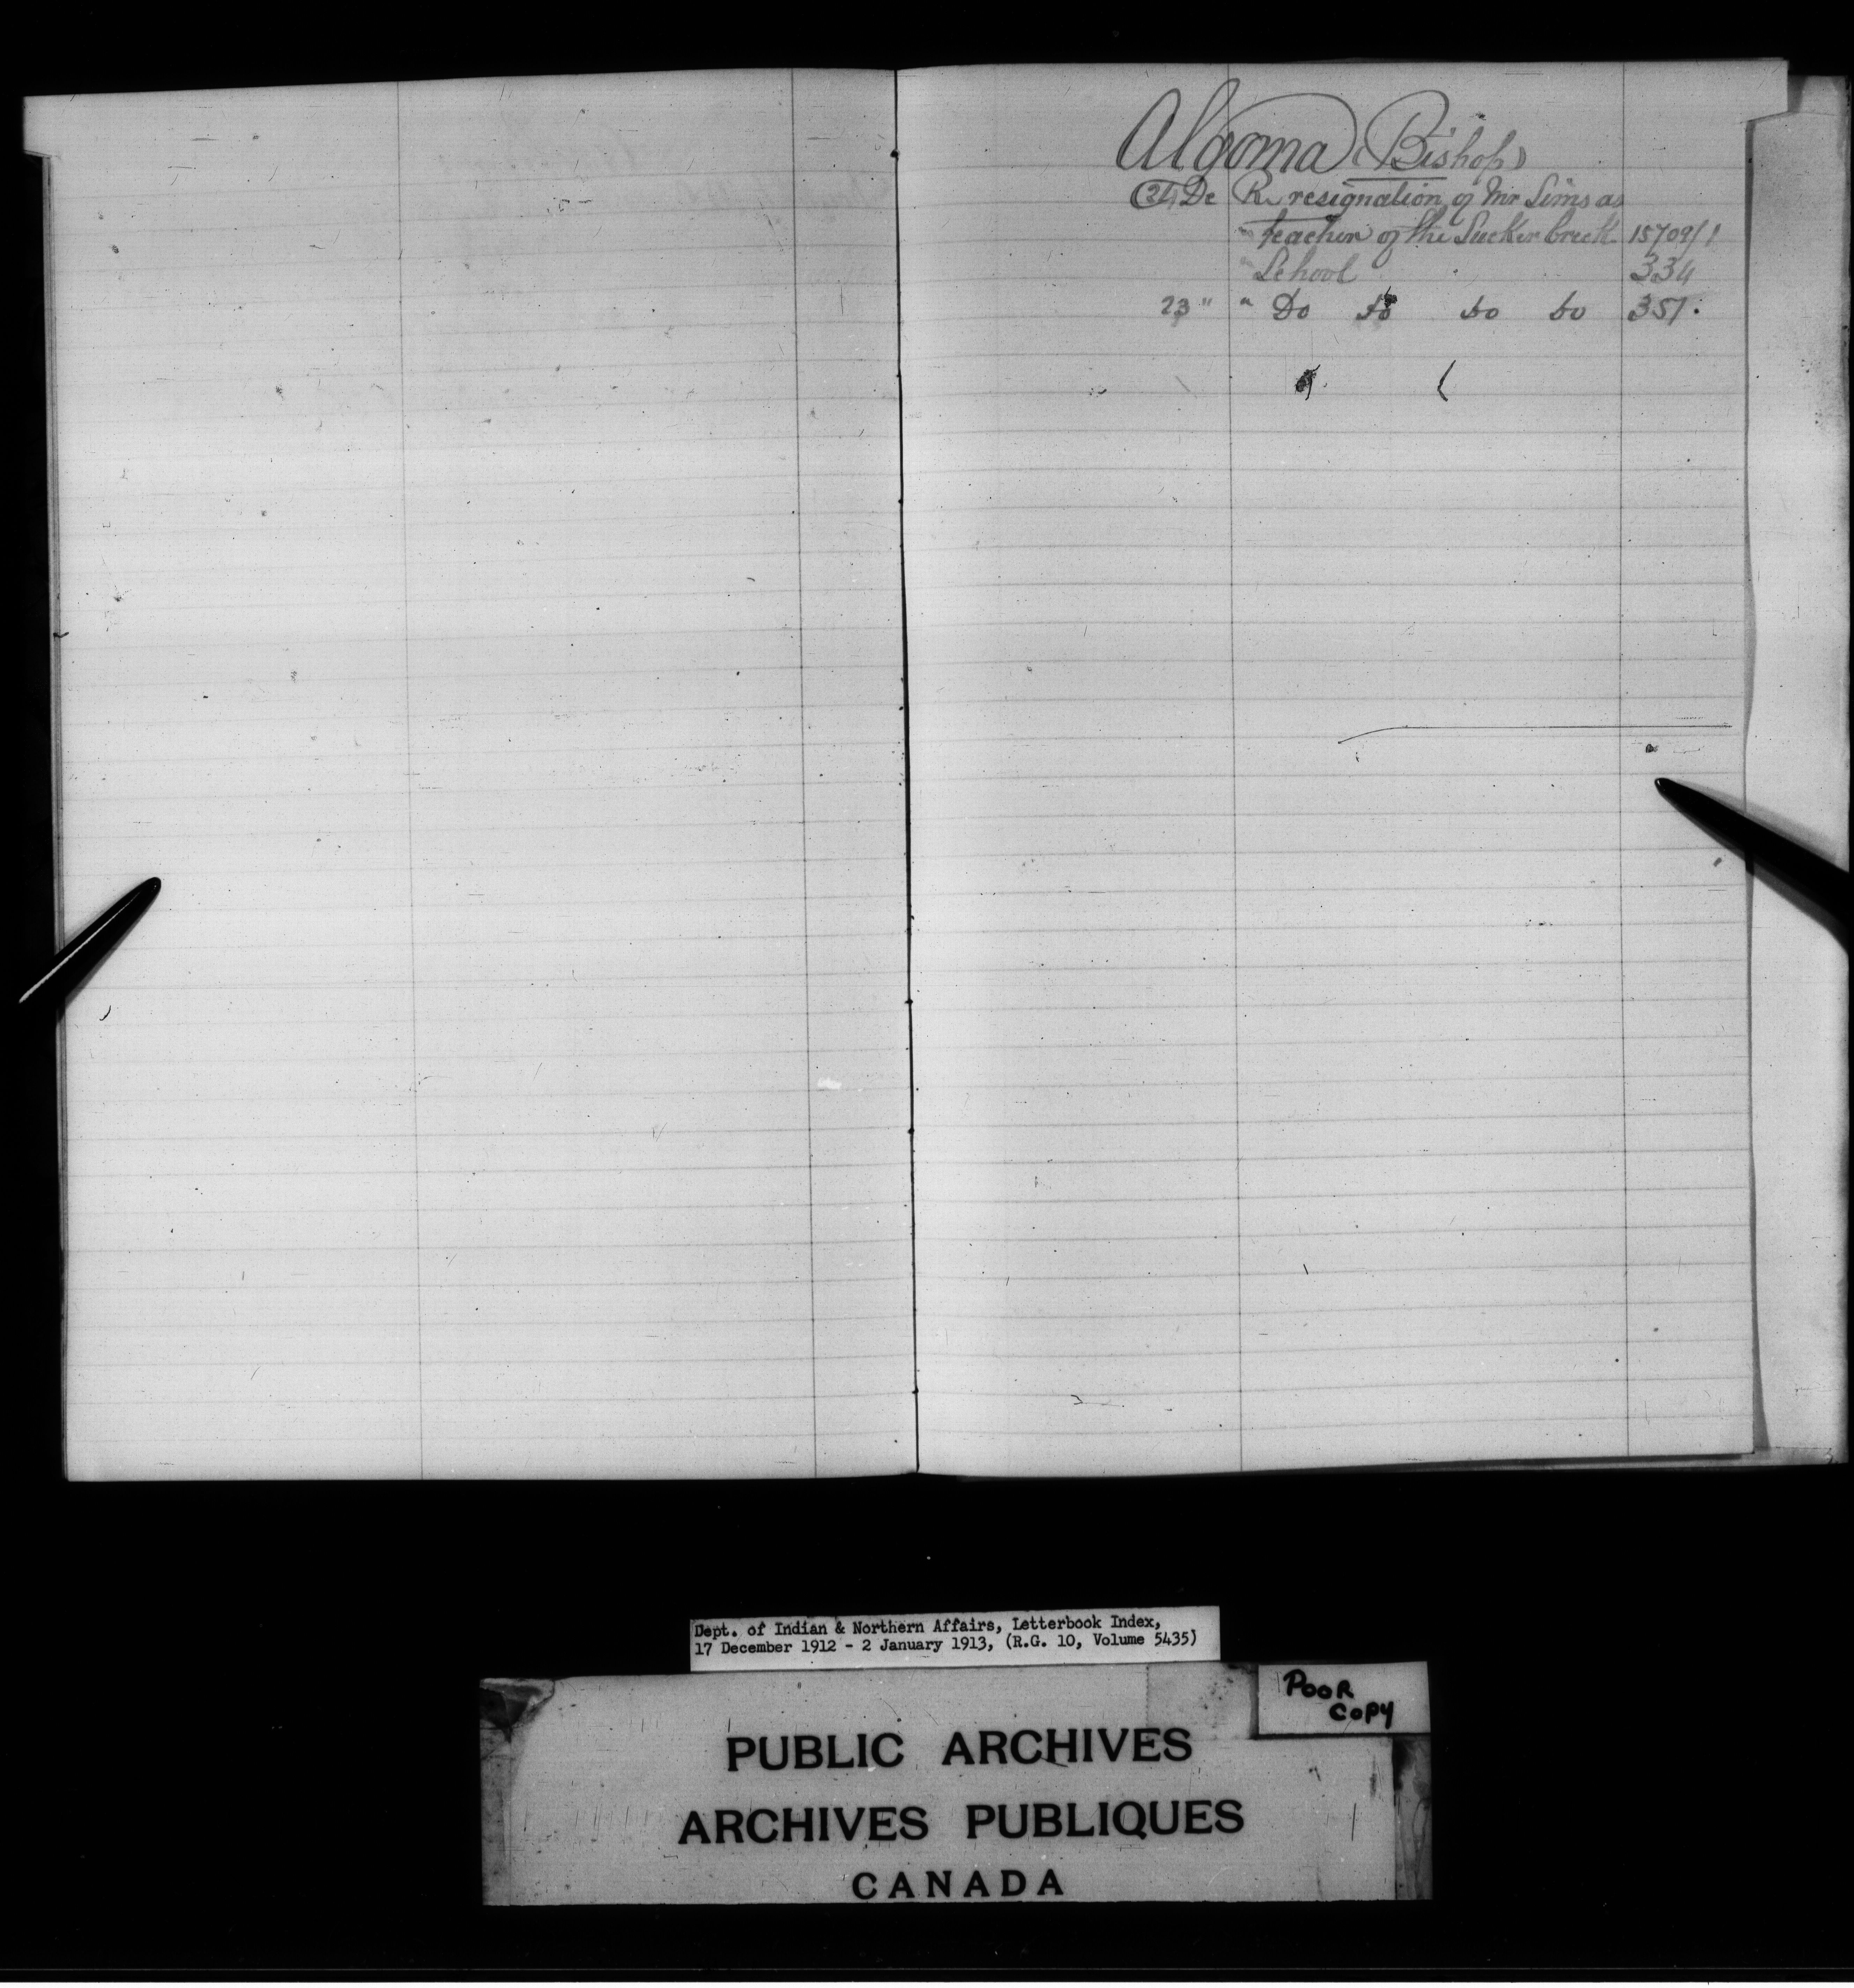 Algoma (Bishop)
24 De Re resignation of Mr Sims as
teacher of the Sucker Creek 15709/1
School 334
23 " " Do do do do 351.
Dept. of Indian & Northern Affairs, Letterbook Index,
17 December 1912 - 2 January 1913, (R.G. 10, Volume 5435)
POOR
COPY
PUBLIC ARCHIVES
ARCHIVES PUBLIQUES
CANADA